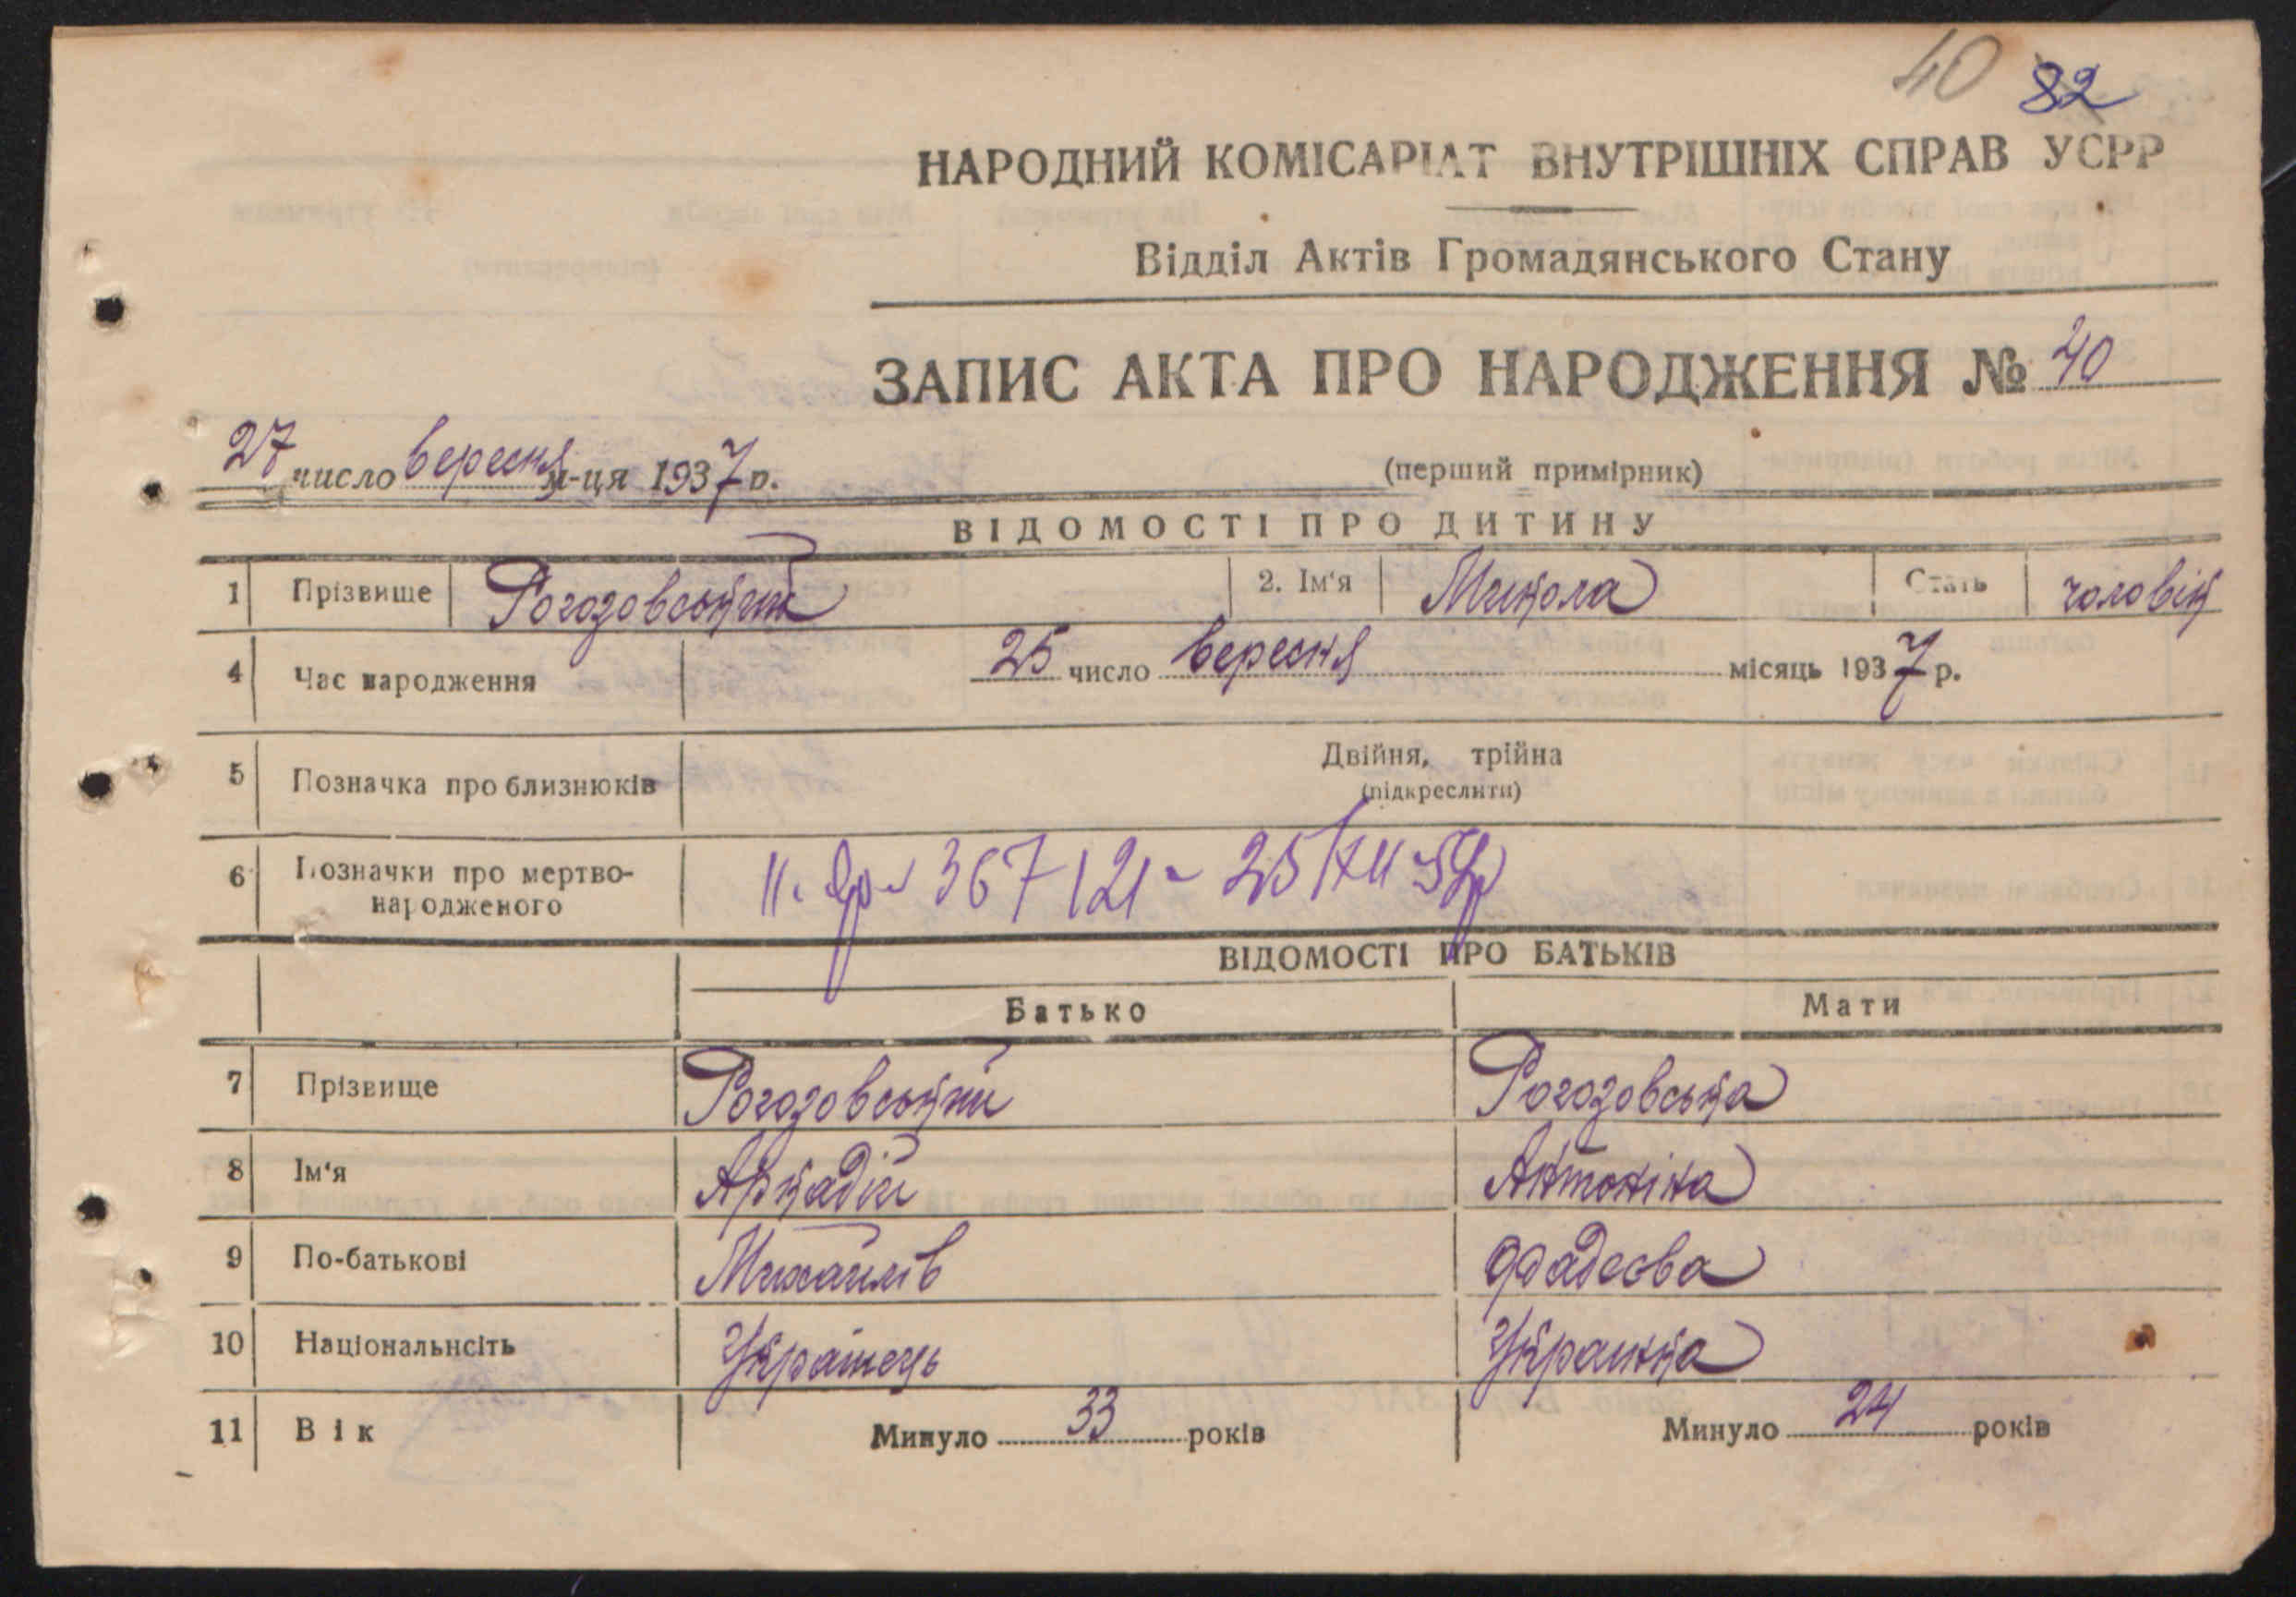 40 82
НАРОДНИЙ КОМІСАРІАТ ВНУТРІШНІХ СПРАВ УСРР
Відділ Актів Громадянського Стану
ЗАПИС АКТА ПРО НАРОДЖЕННЯ № 40
27 число вересня м-ця 1937 р. (перший примірник)
ВІДОМОСТІ ПРО ДИТИНУ
1 Прізвище Рогозовський 2. Ім'я Микола Стать чоловік
4 Час народження 25 число вересня місяць 1937 р.
5 Позначка про близнюків Двійня, трійна
(підкреслити)
6 Позначки про мертво-
народженого 367121
ВІДОМОСТІ ПРО БАТЬКІВ
Батько Мати
7 Прізвище Рогозовський Рогозовська
8 Ім'я Аркадій Антоніна
9 По-батькові Михайлів Фадеєва
10 Національнсіть Українець Українка
11 Вік Минуло 33 років Минуло 24 років